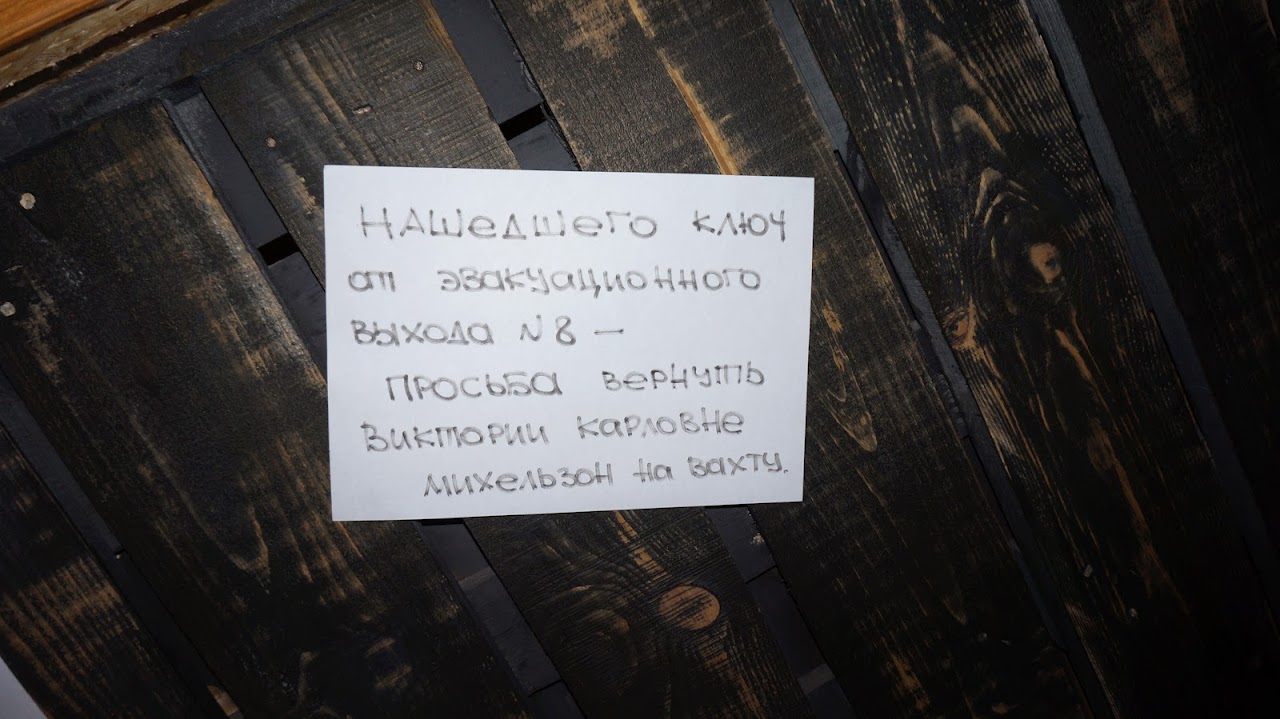 Нашедшего ключ
от эвакуационного
выхода N 8 —
просьба вернуть
Виктории Карловне
Михельзон на вахту.